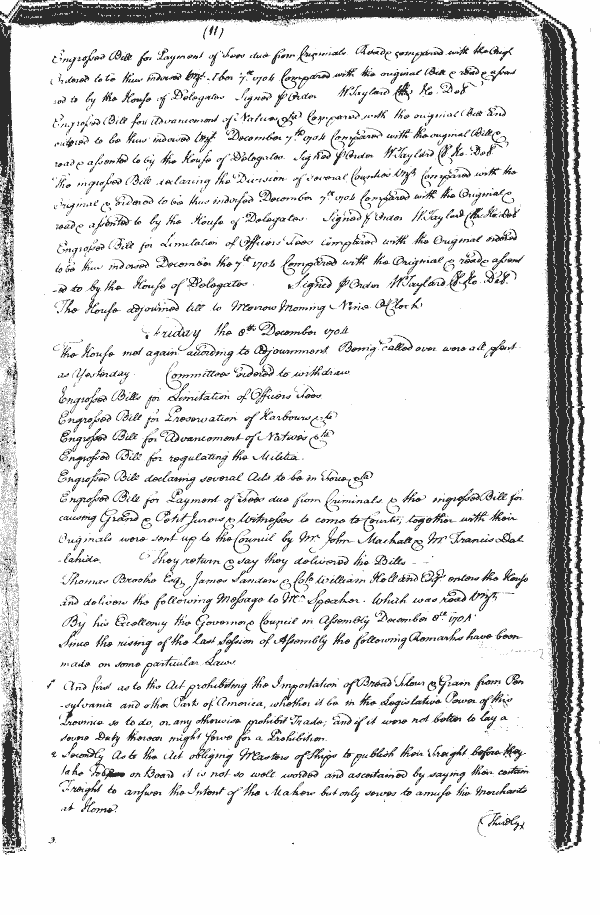 (11)
Engrossed Bill for Payment of Fees due from Criminals Read & compared with the Origl
Ordered to be thus indorsed 7th 1704 Compared with the original Bill & read & assen
ted to by the House of Delegates Signed p Order W Taylard Clk Ho. Del
Engrossed Bill for Advancement of Natives &ca Compared with the original Bill and
ordered to be thus indorsed vizt December 7th 1704 Compared with the original Bill &
read & assented to by the House of Delegates. Signed p Order W Taylard Cl Ho. Del
The ingrossed Bill declaring the Division of several Counties Compared with the
Original & ordered to be thus indorsed December 7th 1704 Compared with the Original &
read & assented to by the House of Delegates Signed p Order W Taylard Clk Ho. Del
Engrossed Bill for Limitation of Officers Fees Compared with the Original ordered
to be thus indorsed December the 7th 1704 Compared with the Original & read & assent
ed to by the House of Delegates. Signed p Order W Taylard Cl Ho. Del.
The House adjourned till to Morrow Morning Nine OClock
Friday the 8th December 1704
The House met again according to Adjournment Being called over were all p'sent
as Yesterday. Committees ordered to withdraw
Engrossed Bills for Limitation of Officers Fees
Engrossed Bill for Preservation of Harbours &ca
Engrossed Bill for Advancement of Natives &ca
Engrossed Bill for regulating the Militia.
Engrossed Bill declaring several Acts to be in Force &ca
Engrossed Bill for Payment of Fees due from Criminals & the ingrossed Bill for
causing Grand & Petit Jurors & Witnesses to come to Courts, together with their
Originals were sent up to the Council by Mr John Mackall & Mr Francis Dol
lahide. They return & say they delivered the Bills
Thomas Brooke Esqr James Sanders & Colo William Holland Esqr enters the House
and delivers the following Message to Mr Speaker. Which was read vizt
By his Excellency the Governor & Council in Assembly December 8th 1704
Since the rising of the last Session of Assembly the following Remarks have been
made on some particular Laws.
1 And first as to the Act prohibiting the Importation of Bread Flour & Grain from Pen
sylvania and other Parts of America, whether it be in the Legislative Power of this
Province so to do, or any otherwise prohibit Trade, and if it were not better to lay a
some Duty thereon might serve for a Prohibition.
2 Secondly As to the Act obliging Masters of Ships to publish their Freight before they
take on Board it is not so well worded and ascertained by saying their certain
Freight to answer the Intent of the Makers but only serves to amuse the Merchants
at Home.
Thirdly
3